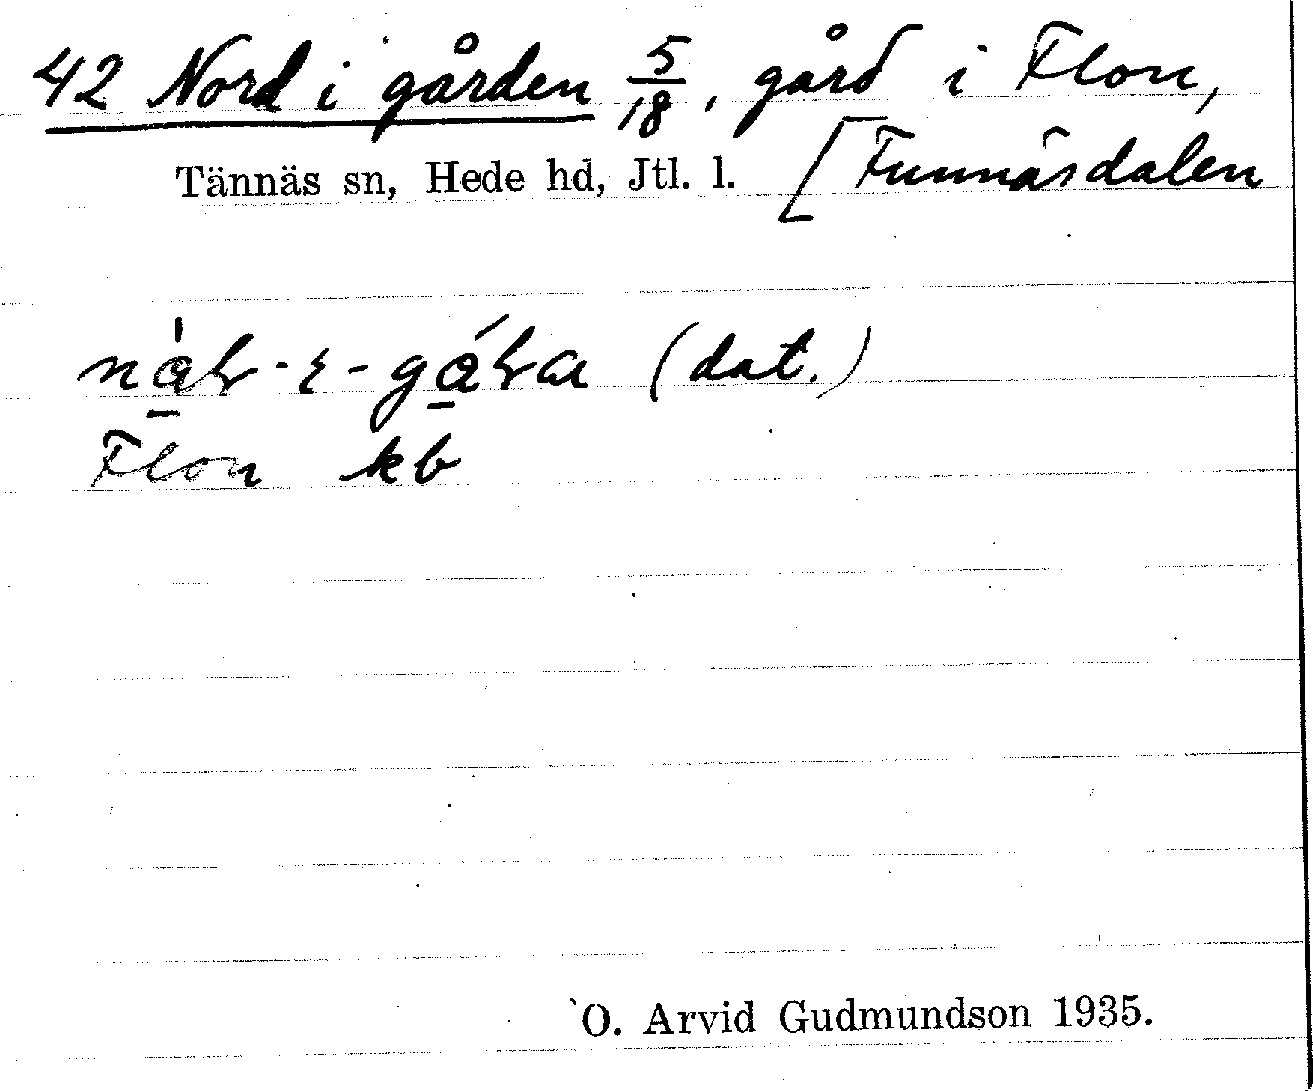 42 Nord i gården 5/18, gård i Flon,
Tännäs sn, Hede hd, Jtl. l. [Funnäsdalen
(dat.)
Flon kb
O. Arvid Gudmundson 1935.